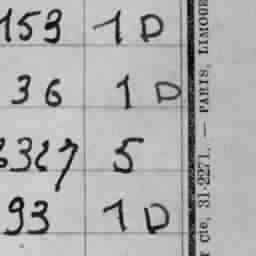 153 1 D
36 1 D
3327 5
93 1 D
Cie, 31-2271. — PARIS, LIMOGE